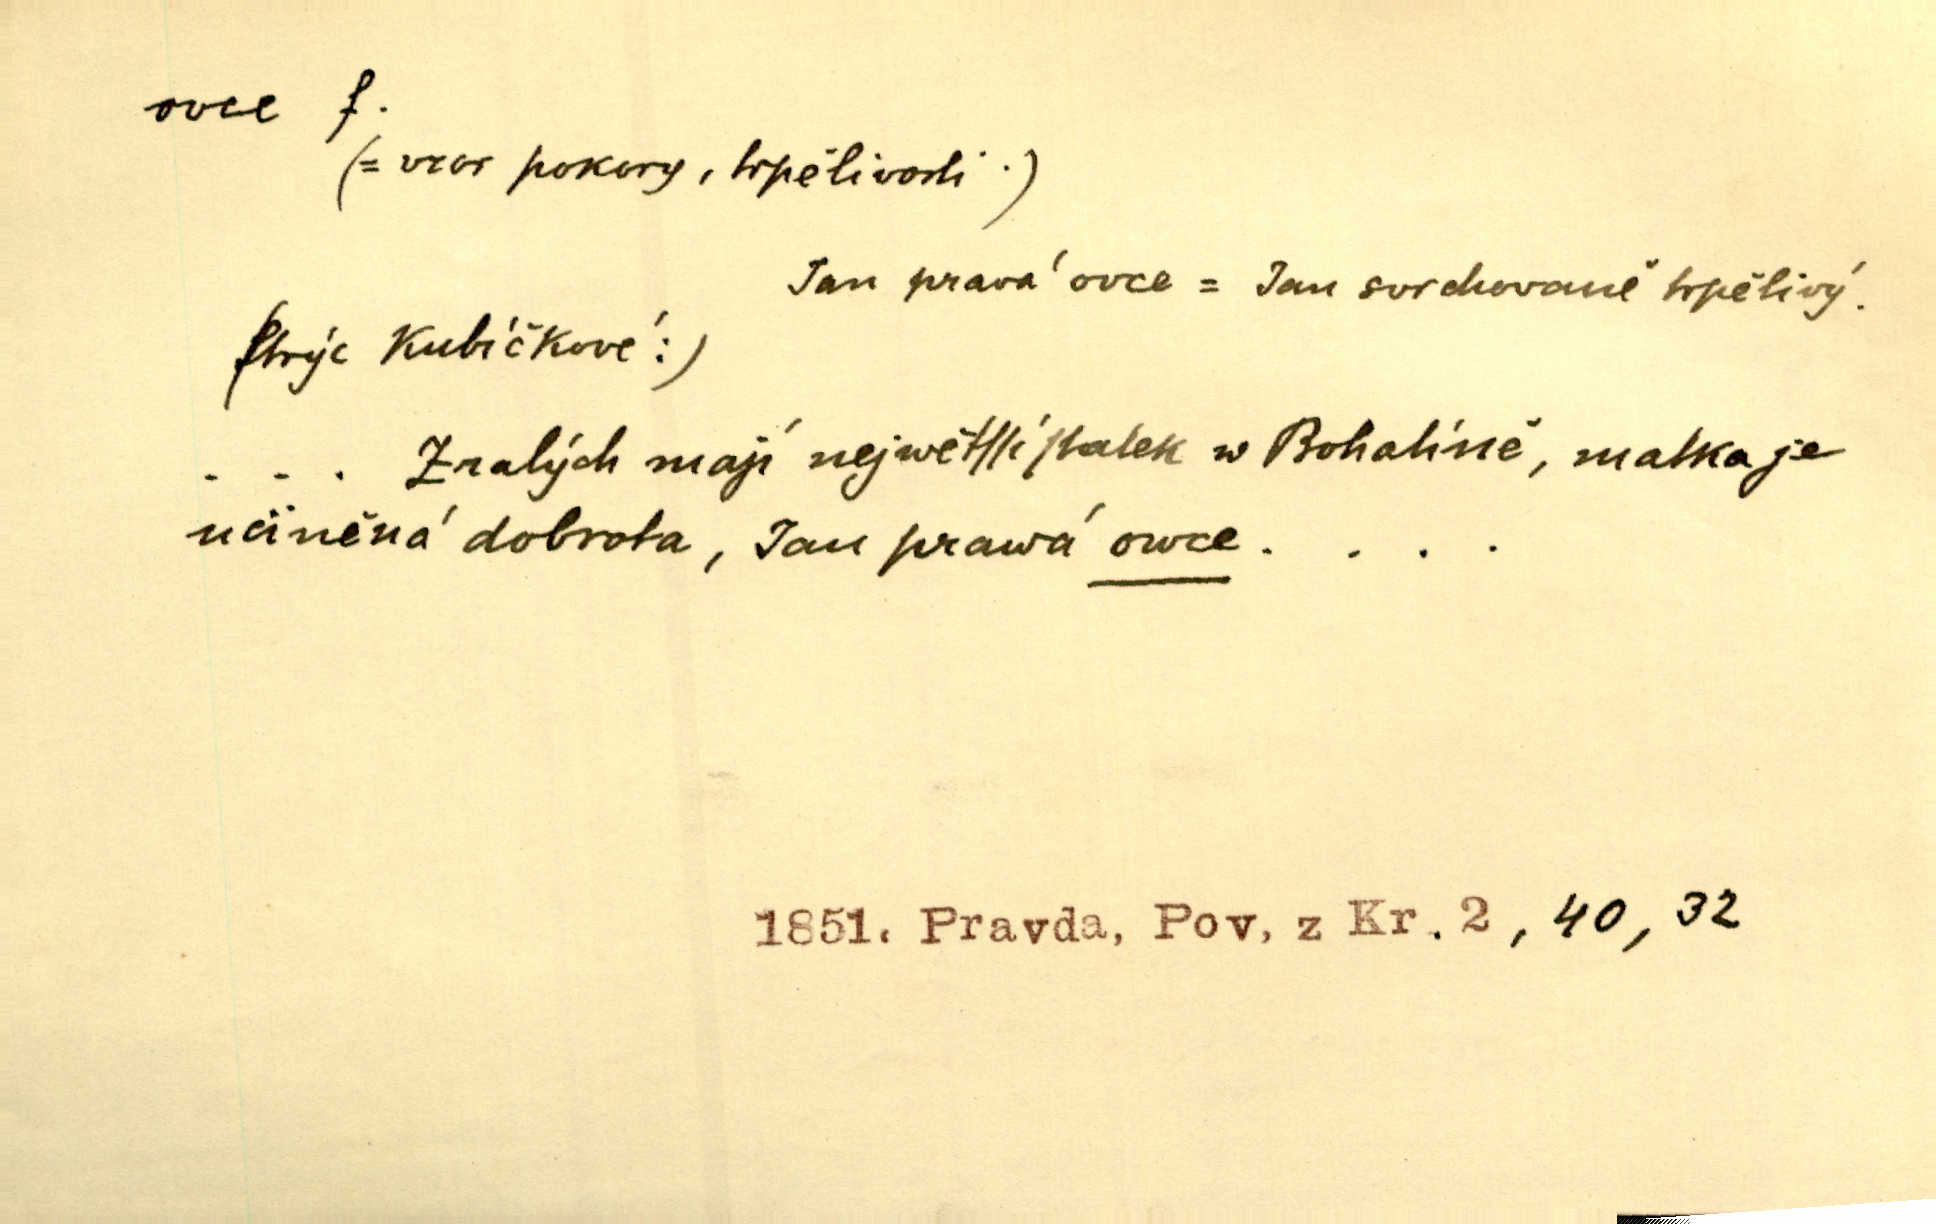 ovce f.
(= vzor pokory, trpělivosti.)
Jan pravá ovce = Jan svrchovaně trpělivý.
(Strýc Kubíčkové:)
. . . Zralých mají největſſí ſtatek w Bohatíně, matka je
učiněná dobrota, Jan prawá owce. . . .
1851. Pravda, Pov, z Kr. 2, 40, 32